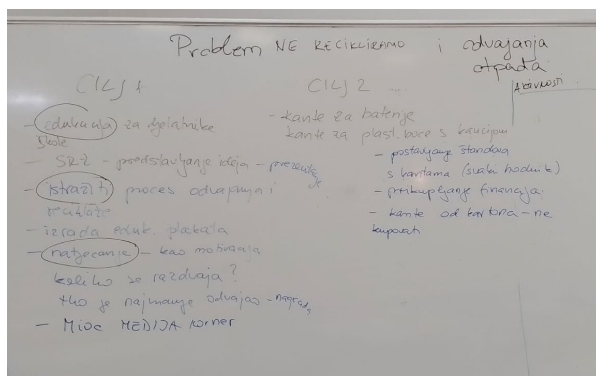 Problem NE RECIKLIRAMO i odvajanja
otpada
CILJ 1
- edukacija za djelatnike
škole
- SRZ - predstavljanje ideja - prezentacije
- istražiti proces odvajanja i
reciklaže
- izrada eduk. plakata
- natjecanje - kao motivacija
koliko se razdvaja?
tko je najmanje odvajao - nagrada
- Mioc MEDIJA korner
CILJ 2 ...
- kante za baterije
kante za plast. boce s kaucijom
AKTIVNOSTI
- postavljanje štandova
s kantama (svaki hodnik)
- prikupljanje financija
- kante od kartona - ne
kupovati